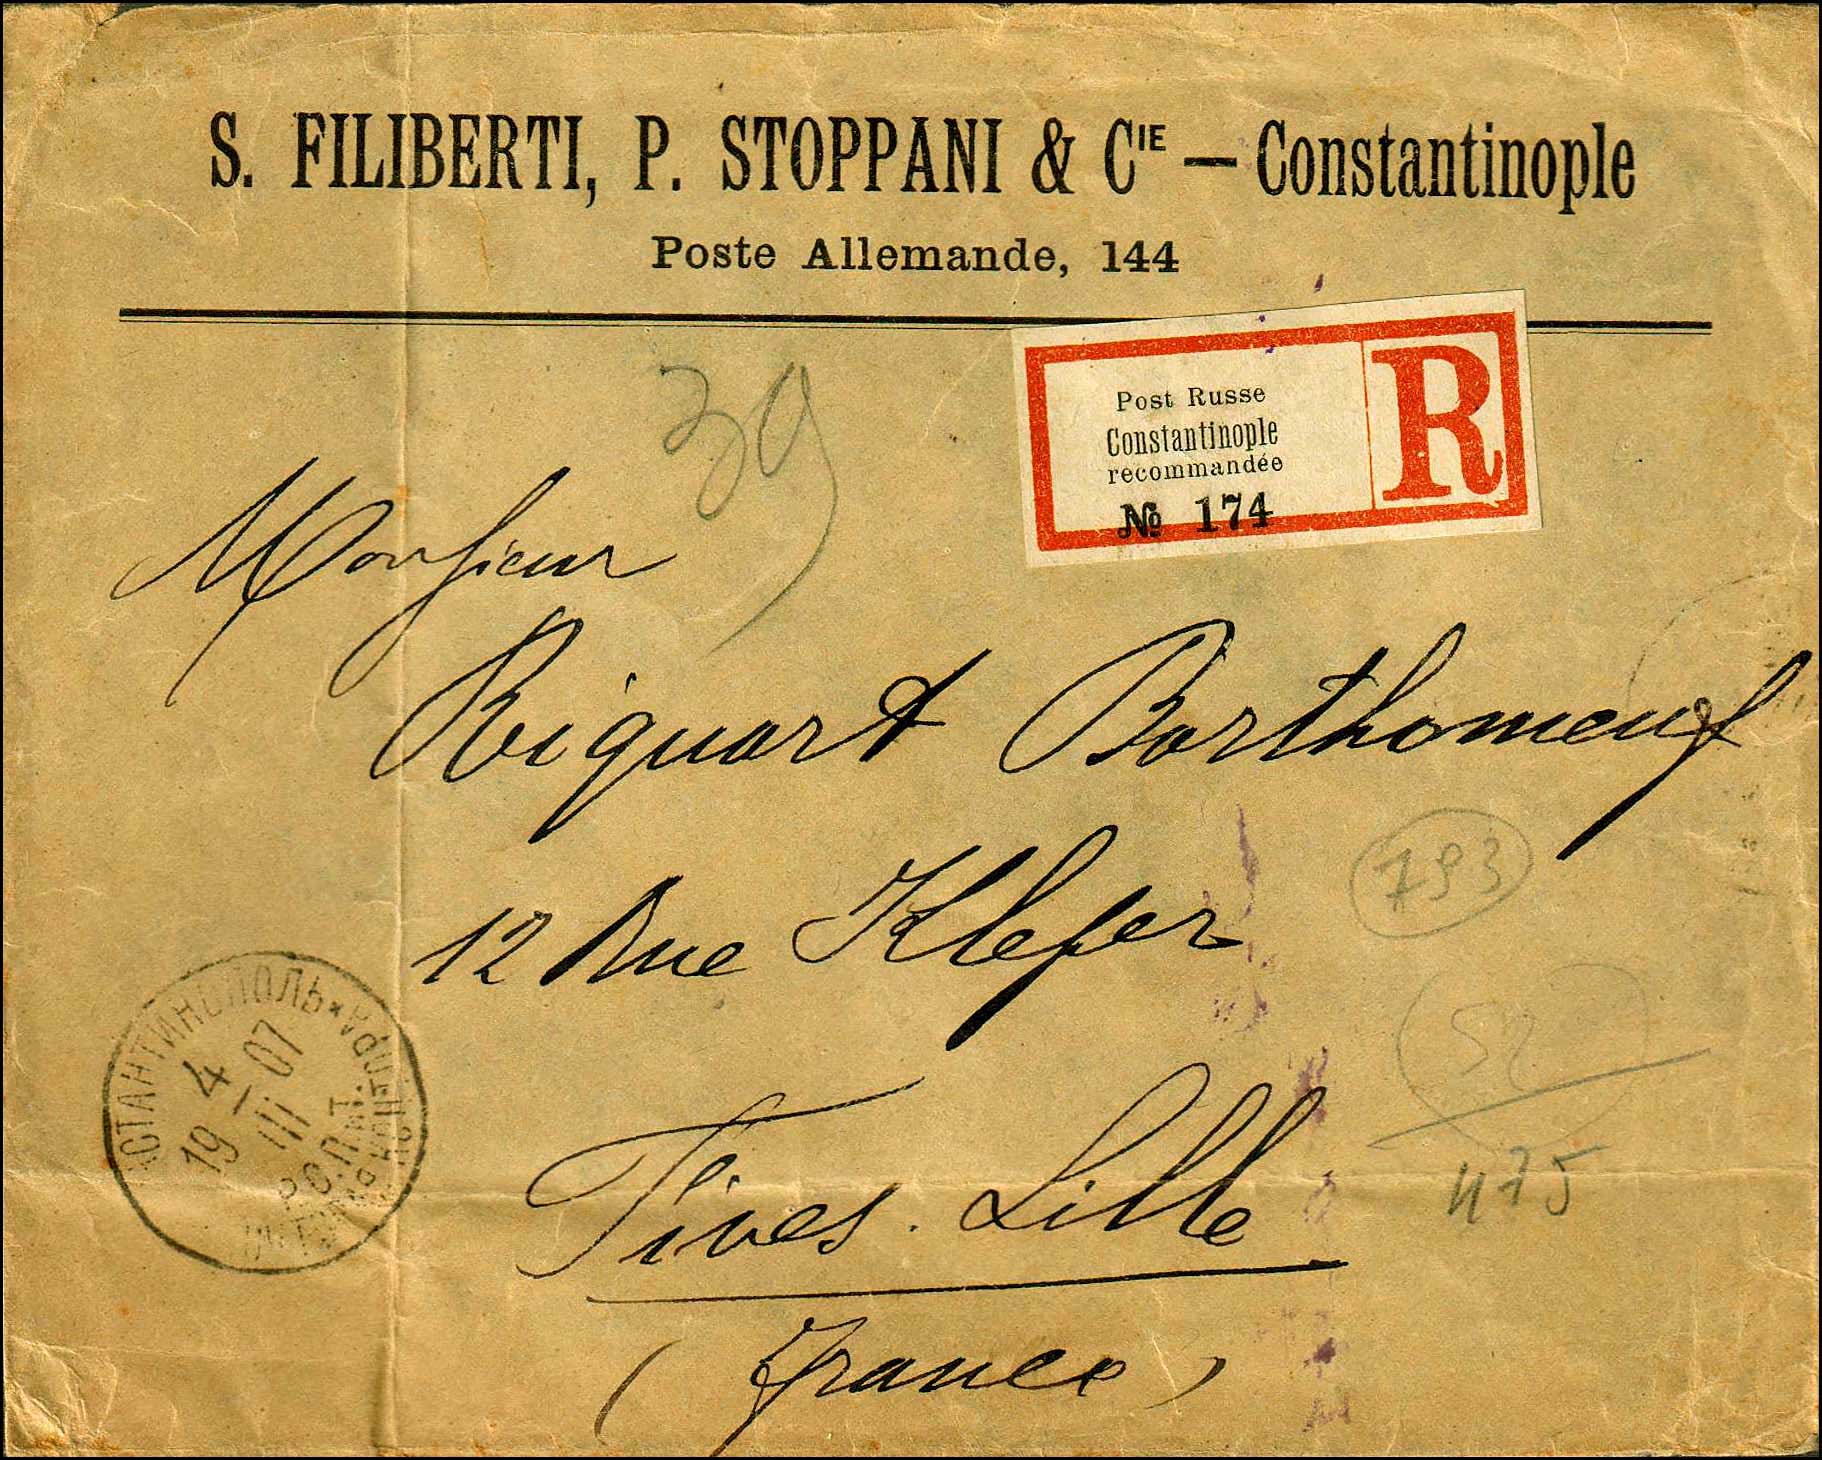 S. FILIBERTI, P. STOPPANI & CIE — Constantinople
Poste Allemande, 144
39
Post Russe
Constantinople
recommandée
№ 174
R
Monsieur
Riquart Barthomeuf
793
12 Rue Kléper
52
475
Fives. Lille
(France)
СТАНТИНОПОЛЬ
4
III
1907
Р.О.П.иТ.